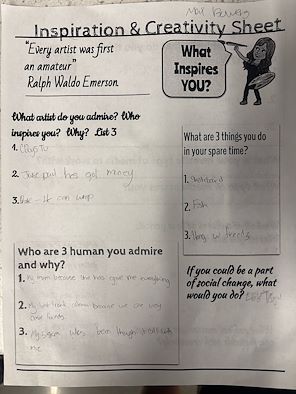 Max
Inspiration & Creativity Sheet
"Every artist was first
an amateur"
Ralph Waldo Emerson.
What
Inspires
YOU?
What artist do you admire? Who
inspires you? Why? List 3
1.
2. has got money
3. it can
What are 3 things you do
in your spare time?
1. skateboard
2. Fish
3. Hang w friends
Who are 3 human you admire
and why?
1. My mom because she has give me everything
2. My best friend because we are very
3. My been through it all with
me
If you could be a part
of social change, what
would you do?